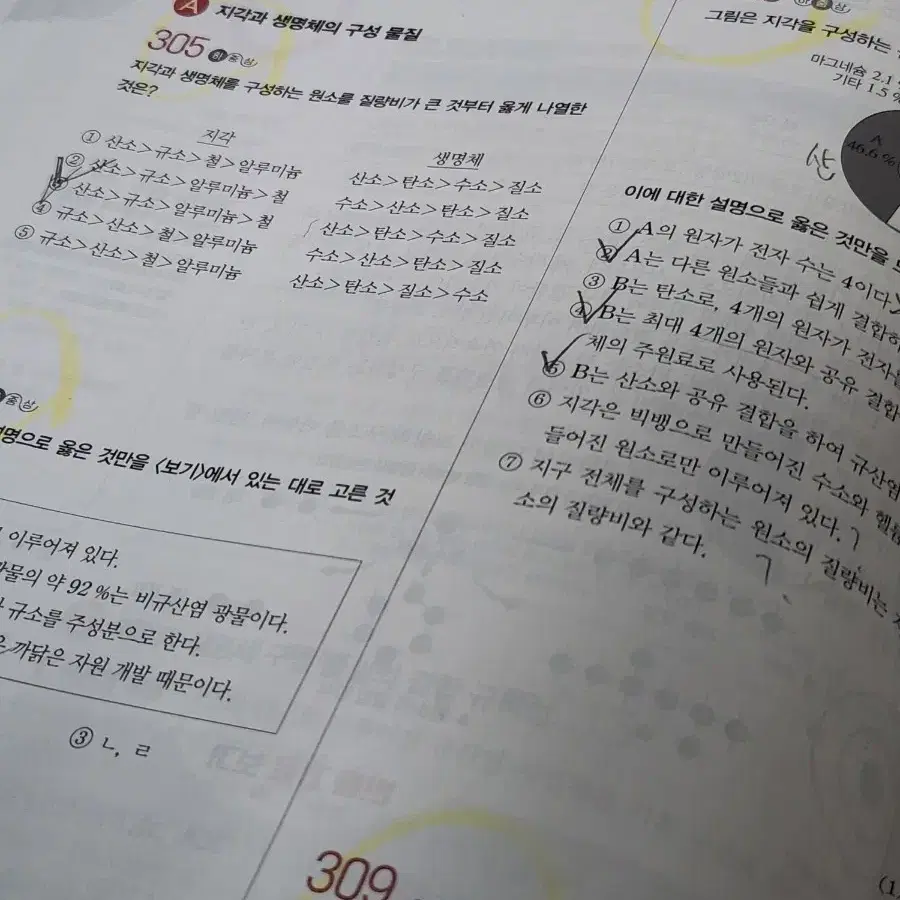 A 지각과 생명체의 구성 물질
305 하 중 상
지각과 생명체를 구성하는 원소를 질량비가 큰 것부터 옳게 나열한
것은?
지각 생명체
① 산소>규소>철>알루미늄 산소>탄소>수소>질소
② 산소>규소>알루미늄>철 수소>산소>탄소>질소
③ 산소>규소>알루미늄>철 산소>탄소>수소>질소
④ 규소>산소>철>알루미늄 수소>산소>탄소>질소
⑤ 규소>산소>철>알루미늄 산소>탄소>질소>수소
중 상
명으로 옳은 것만을 <보기>에서 있는 대로 고른 것
이루어져 있다.
광물의 약 92 %는 비규산염 광물이다.
규소를 주성분으로 한다.
까닭은 자원 개발 때문이다.
③ ㄴ, ㄹ
하 중 상
그림은 지각을 구성하는
마그네슘 2.1
기타 1.5 %
A
46.6 %
산
이에 대한 설명으로 옳은 것만을
① A의 원자가 전자 수는 4이다.
② A는 다른 원소들과 쉽게 결합하
③ B는 탄소로, 4개의 원자가 전자를
④ B는 최대 4개의 원자와 공유 결합
체의 주원료로 사용된다.
⑤ B는 산소와 공유 결합을 하여 규산염
⑥ 지각은 빅뱅으로 만들어진 수소와 헬륨
들어진 원소로만 이루어져 있다.
⑦ 지구 전체를 구성하는 원소의 질량비는
소의 질량비와 같다.
309